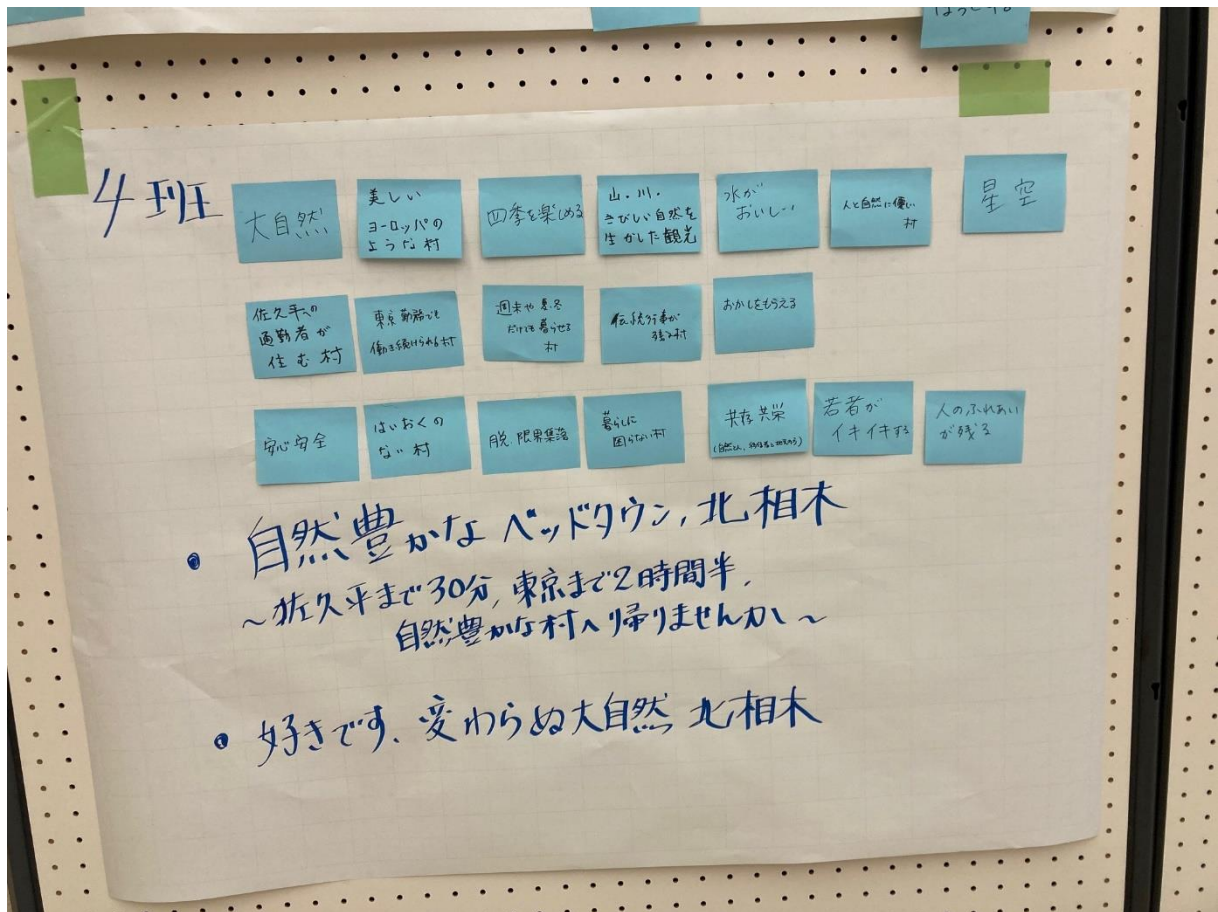 4班
大自然
美しい
ヨーロッパの
ような村
四季を楽しめる
山・川・
きびしい自然を
生かした観光
水が
おいしい
人と自然に優しい
村
星空
佐久平への
通勤者が
住む村
東京勤務でも
働き続けられる村
週末や夏、冬
だけでも暮らせる
村
伝統行事が
残る村
おかしをもらえる
安心安全
はいおくの
ない村
脱、限界集落
暮らしに
困らない村
共存共栄
若者が
イキイキする
人のふれあい
が残る
・自然豊かなベッドタウン,北相木
~佐久平まで30分,東京まで2時間半,
自然豊かな村へ帰りませんか~
・好きです、変わらぬ大自然 北相木